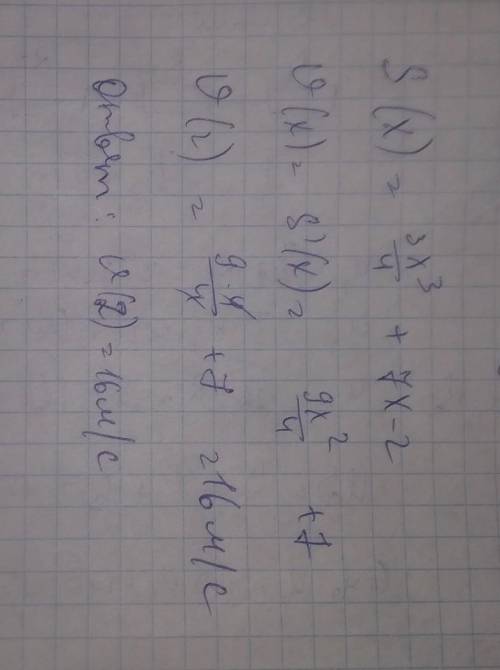 S(x) = 3x³/4 + 7x - 2
v(x) = S'(x) = 9x²/4 + 7
v(2) = 9·4/4 + 7 = 16 м/с
Ответ: v(2) = 16 м/с